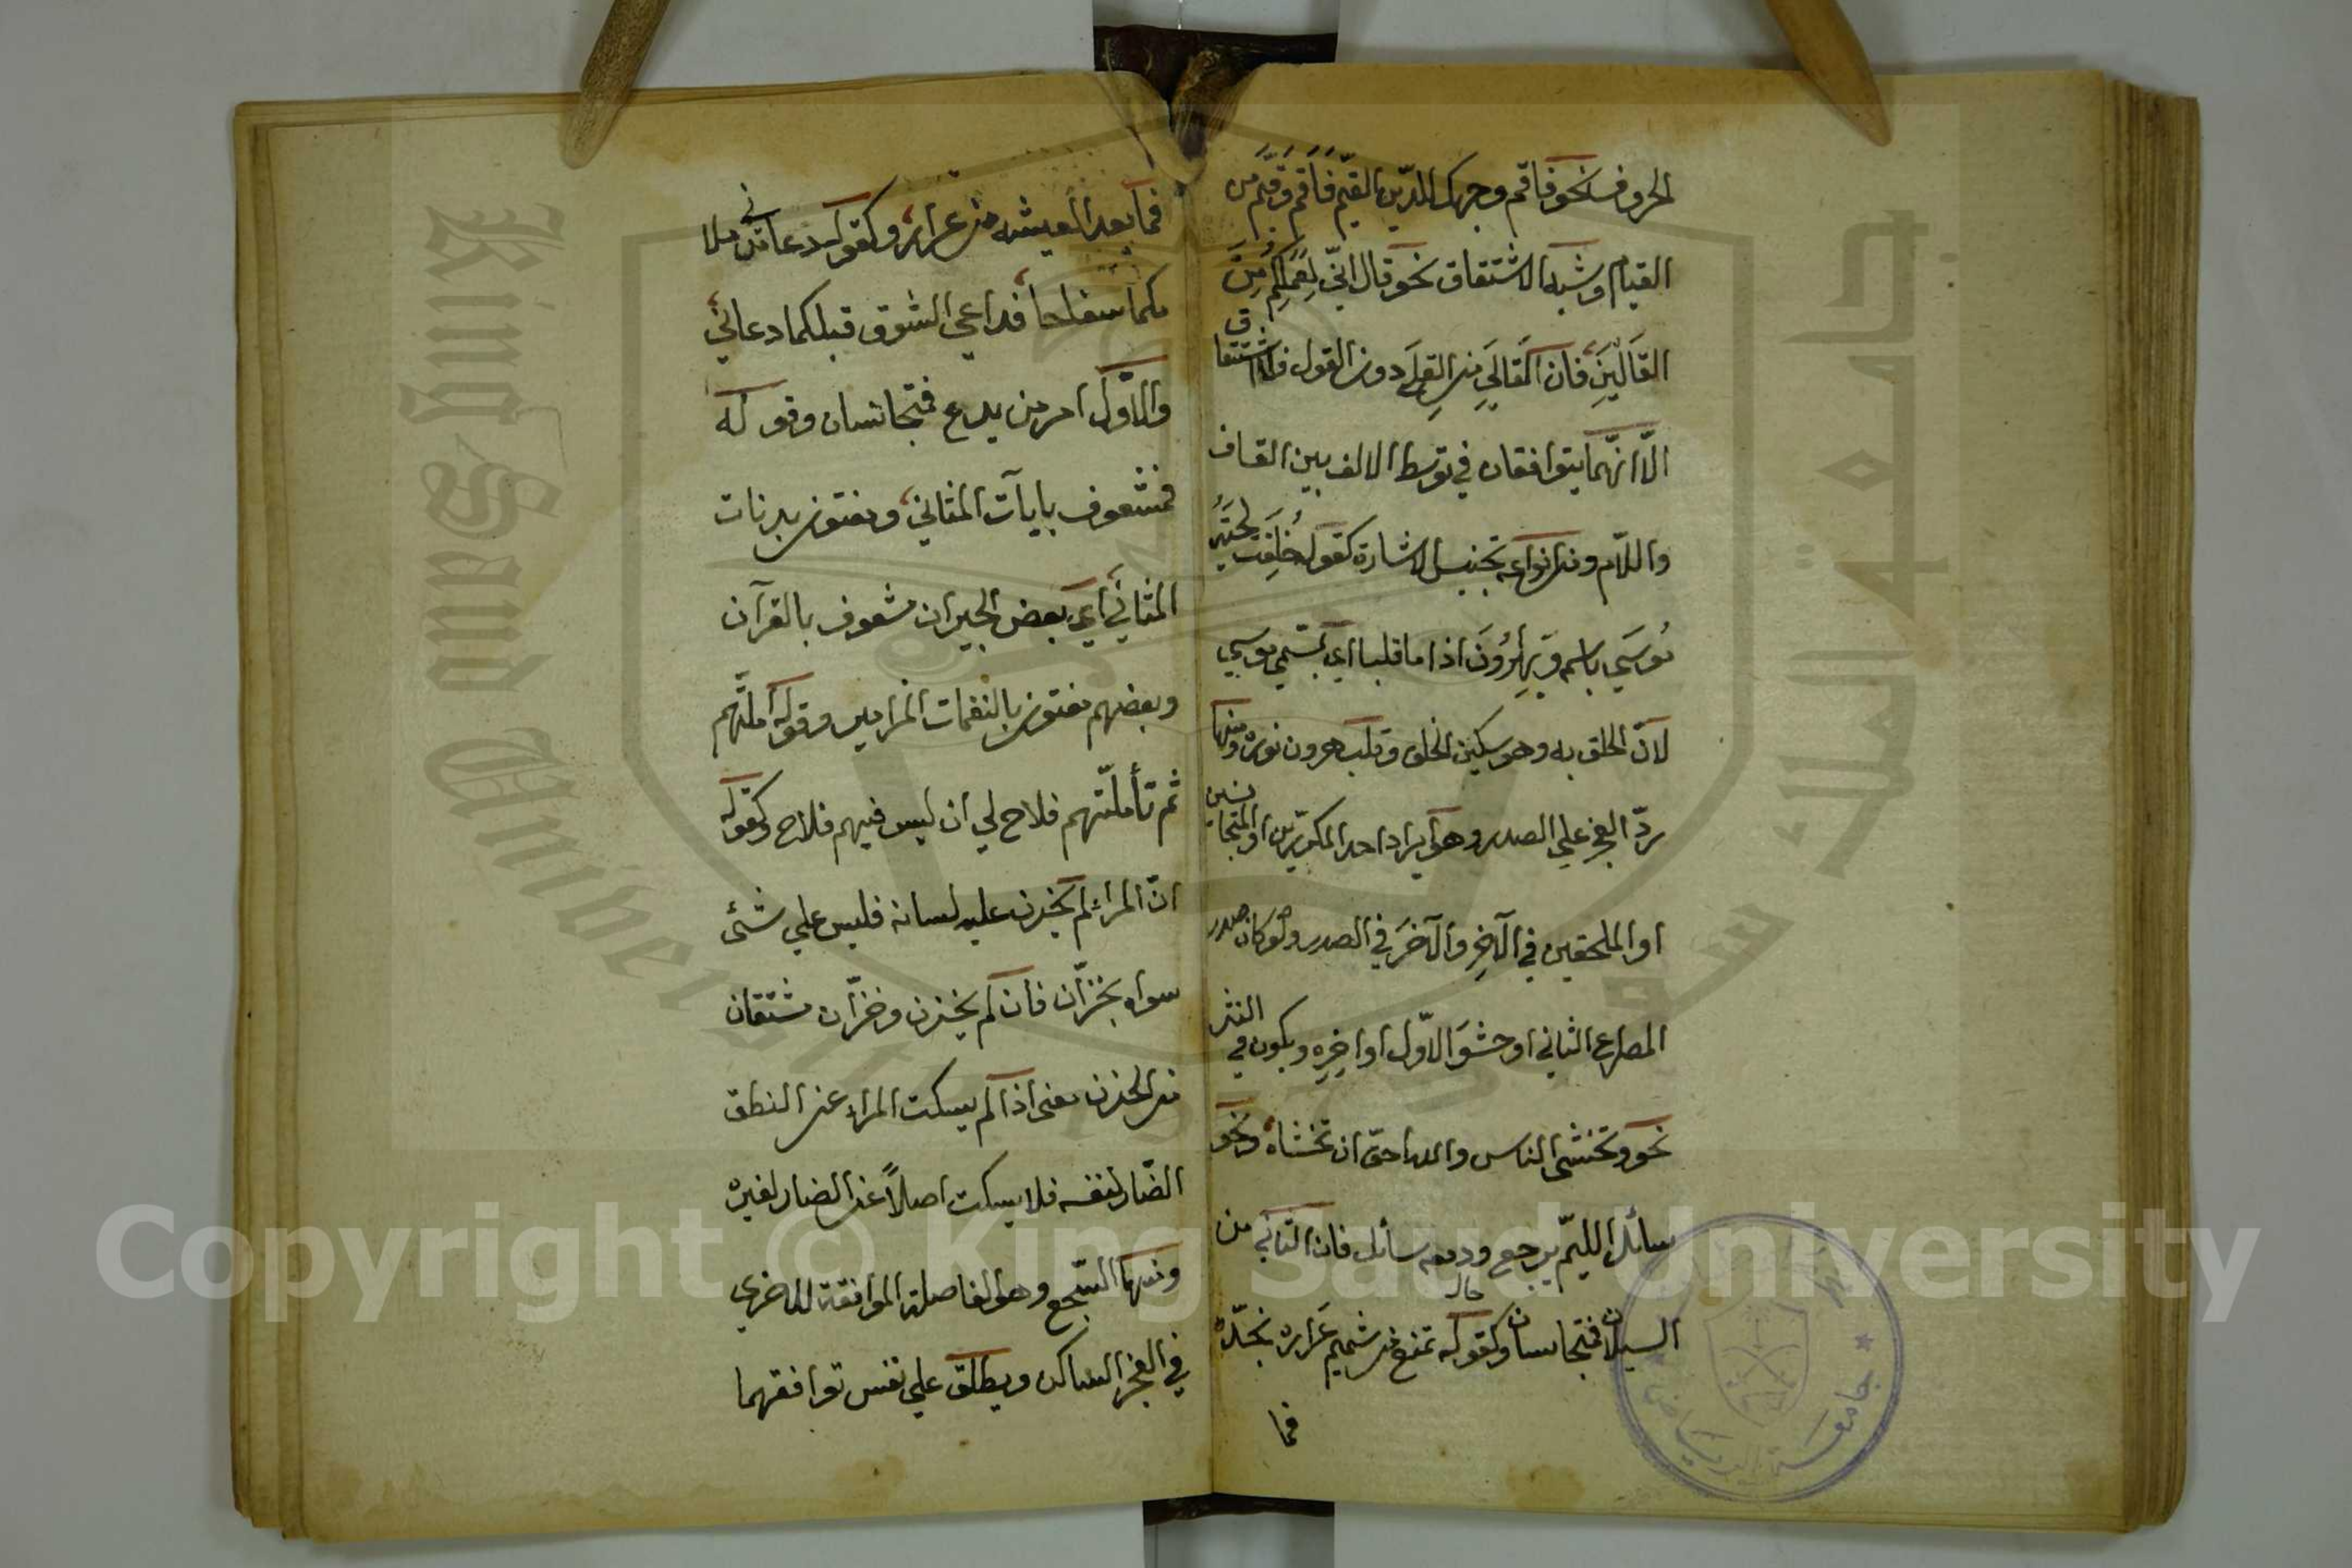 الحروف نحو فاقم وجهك للدّين القيّم فَأَقم وقَيّم من
القيام وشبه الاشتقاق نحو قال انّي لِعَمَلِكُم مِنَ
القَالِينَ فان القَالِي من القِلَى دون القول فالاشتقاق
الّا انّهما يتوافقان في توسط الالف بين القاف
واللّام ومن انواعه تجنيس الاشارة كقوله حُلِقَت لحيَةُ
مُوسَي باسمه وَبِهرُونَ اذا ما قلبا اي بمسمّي موسي
لانّ الحلق به وهو سكين الحلق وقلب هرون نوره ومنها
ردّ العجز علي الصدر وهو ايراد احد المكرّرين او المتجانسين
او الملحقين في الآخِر والآخَر في الصدر ولو كان صدر
المصراع الثاني او حشوَ الاوّل او اخِرِهِ ويكون في النثر
نحو وتخشي الناس والله احقّ ان تخشاه ونحو
سائل اللئيم يرجع ودمعه سائل فان الثاني من
السيلان فتجانسان وكقوله تمتع من شميم عَرَارِ نجد
فما
فما بعد العيشة من عرار وكقوله دعاني من ملا
مكما سفاحا فداعي الشوق قبلكما دعاني
والاوّل امر من يدع فتجانسان وقوله
فمشعوف بايآت المثاني ومفتون برنات
المثاني اي بعض الجيران مشعوف بالقرآن
وبعضهم مفتون بالنغمات المزامير وقوله املتهم
ثم تأملّتهم فلاح لي ان ليس فيهم فلاح وكقوله
انّ المراء لم يخزن عليه لسانه فليس علي شئ
سواه بخزّان فان لم يخزن وخزّان مشتقان
من الخزن معني اذا لم يسكت المراء عن النطق
الضّار لنفسه فلا يسكت اصلاً عن الضار لغيره
ومنها السّجع وهو الفاصلة الموافقة للاخري
في العجز الساكن ويطلق علي نفس توافقهما
جامعة الرياض
جامعة الملك سعود
King Saud University
Copyright © King Saud University